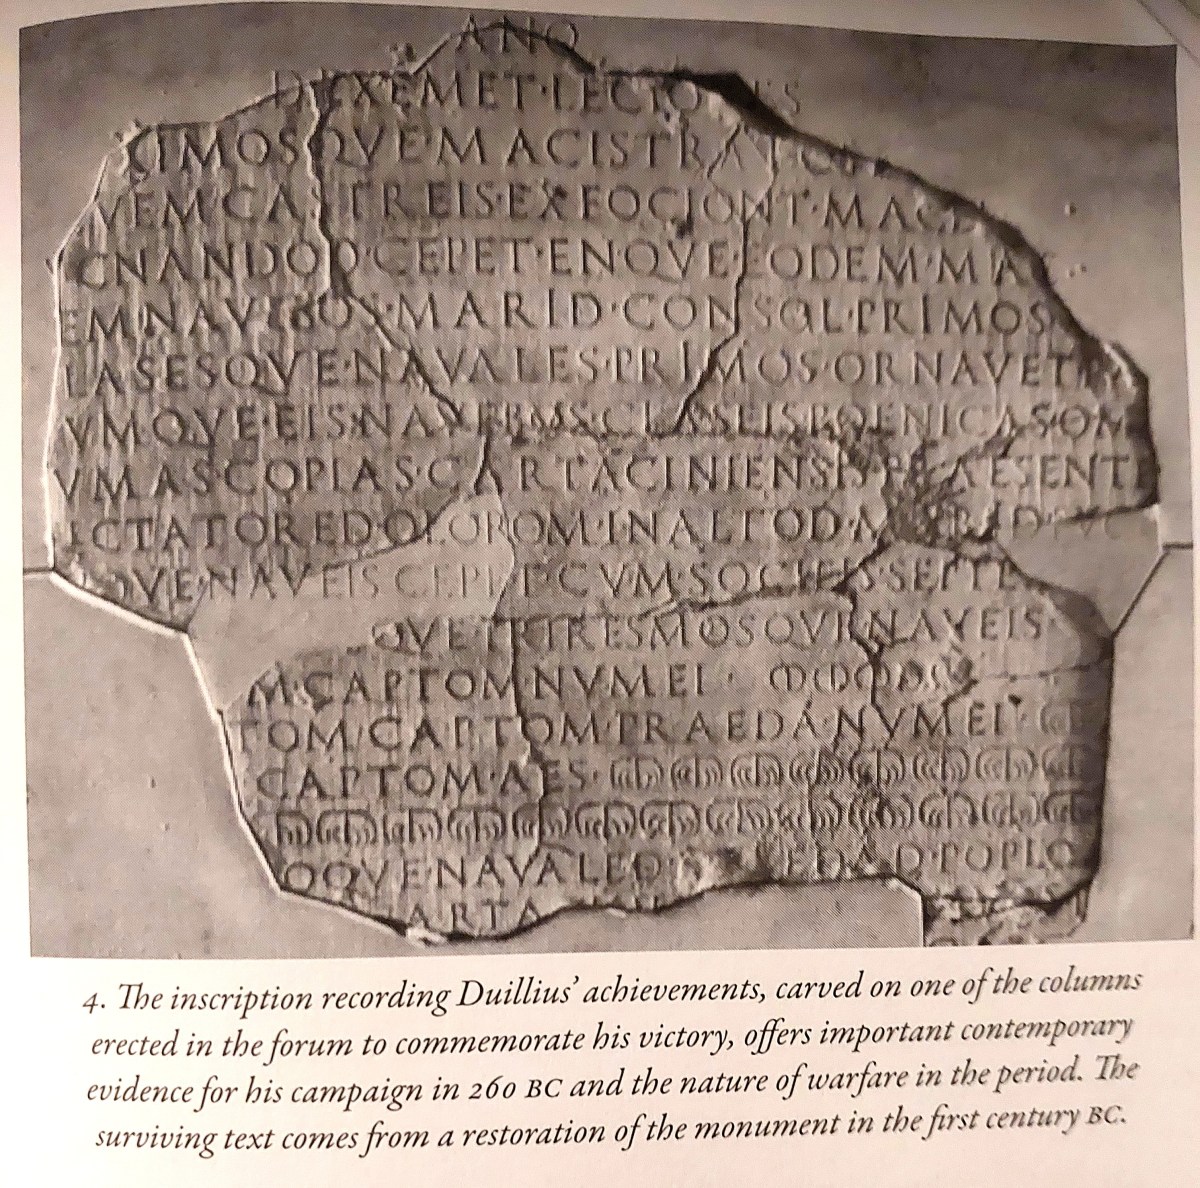 ANO
D EXEMET·LECIO ES
XIMOSQVE·MACISTRAT
VEM·CASTREIS·EXFOCIONT·MACEL
CNANDOD·CEPET·ENQVE·EODEM·MAC
EM·NAVEBOS·MARID·CONSOL·PRIMOS
LASESQVE·NAVALES·PRIMOS·ORNAVET
VMQVE·EIS·NAVEBOS·CLASEIS·POENICAS·OM
VMAS·COPIAS·CARTACINIENSIS·PRAESENTE
ICTATORED·OLOROM·IN·ALTOD·MARID·PVC
QVE·NAVEIS CEPET·CVM·SOCIEIS·SEPTE
QVE·TRIRESMOSQVE·NAVEIS
M·CAPTOM·NVMEI·
TOM·CAPTOM·PRAEDA·NVMEI·
CAPTOM·AES·
OQVE·NAVALED·PRAEDAD·POPLO
CARTA
4. The inscription recording Duillius' achievements, carved on one of the columns
erected in the forum to commemorate his victory, offers important contemporary
evidence for his campaign in 260 BC and the nature of warfare in the period. The
surviving text comes from a restoration of the monument in the first century BC.